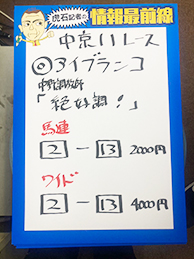 虎石記者の情報最前線
中京11レース
◎アイブランコ
「絶好調!」
馬連
2 - 13 2000円
ワイド
2 - 13 4000円